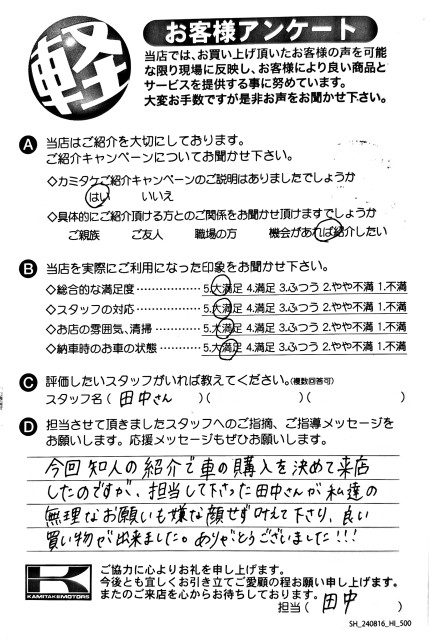 軽
お客様アンケート
当店では、お買い上げ頂いたお客様の声を可能
な限り現場に反映し、お客様により良い商品と
サービスを提供する事に努めています。
大変お手数ですが是非お声をお聞かせ下さい。
A 当店はご紹介を大切にしております。
ご紹介キャンペーンについてお聞かせ下さい。
◇カミタケご紹介キャンペーンのご説明はありましたでしょうか
はい いいえ
◇具体的にご紹介頂ける方とのご関係をお聞かせ頂けますでしょうか
ご親族 ご友人 職場の方 機会があれば紹介したい
B 当店を実際にご利用になった印象をお聞かせ下さい。
◇総合的な満足度 ‥‥‥‥‥‥ 5.大満足 4.満足 3.ふつう 2.やや不満 1.不満
◇スタッフの対応 ‥‥‥‥‥‥ 5.大満足 4.満足 3.ふつう 2.やや不満 1.不満
◇お店の雰囲気、清掃 ‥‥‥‥ 5.大満足 4.満足 3.ふつう 2.やや不満 1.不満
◇納車時のお車の状態 ‥‥‥‥ 5.大満足 4.満足 3.ふつう 2.やや不満 1.不満
C 評価したいスタッフがいれば教えてください。(複数回答可)
スタッフ名 ( 田中さん )( )( )
D 担当させて頂きましたスタッフへのご指摘、ご指導メッセージを
お願いします。応援メッセージもぜひお願いします。
今回知人の紹介で車の購入を決めて来店
したのですが、担当して下さった田中さんが私達の
無理なお願いも嫌な顔せず叶えて下さり、良い
買い物が出来ました。ありがとうございました!!!
K
KAMITAKEMOTORS
ご協力に心よりお礼を申し上げます。
今後とも宜しくお引き立てご愛顧の程お願い申し上げます。
またのご来店を心からお待ちしております。
担当 ( 田中 )
SH_240816_HI_500